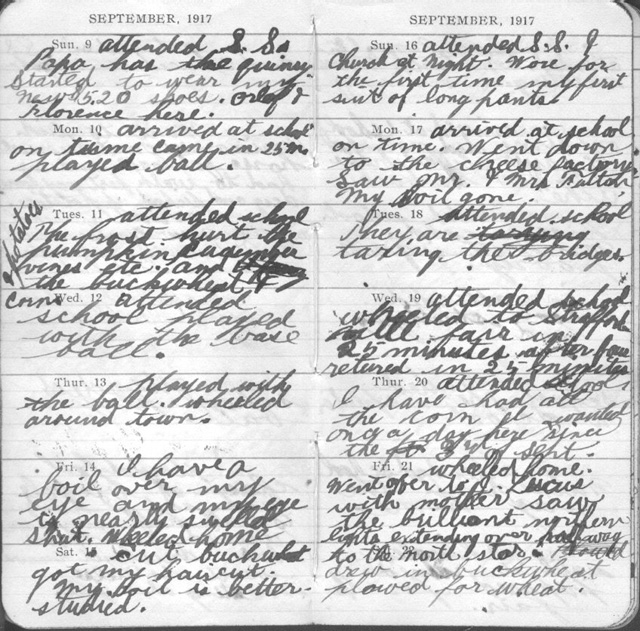 SEPTEMBER, 1917
Sun. 9 attended S. S.
Papa has the quinsy
Started to wear my
New $5.20 shoes.
Florence here.
Mon. 10 arrived at school
on time came in 25 m.
played ball.
Tues. 11 attended school
The frost hurt the
pumpkin cucumber
vines etc. and
the buckwheat &
& potatoes
corn
Wed. 12 attended
school played
with the base
ball.
Thur. 13 played with
the ball. wheeled
around town.
Fri. 14 I have a
boil over my
eye and my eye
is nearly swelled
shut. Weeled home
Sat. 15 cut buckwheat
got my haircut.
My boil is better.
studied.
SEPTEMBER, 1917
Sun. 16 attended S. S. &
Church at Night. Wore for
the first time my first
suit of long pants.
Mon. 17 arrived at school
on time. Went down
to the cheese factory
Saw Mr. & Mrs.
My boil gone.
Tues. 18 attended school
They are
taring the bridges.
Wed. 19 attended school
wheeled to
fair in
25 minutes after four
retured in 25 minites
Thur. 20 attended school
I have had all
the corn I wanted
once a day here since
the 3rd of Sept.
Fri. 21 wheeled home.
Went over to
with mother saw
the brilliant northern
lights extending over half way
to the north star.
Sat. 22
drew in buckwheat
plowed for wheat.